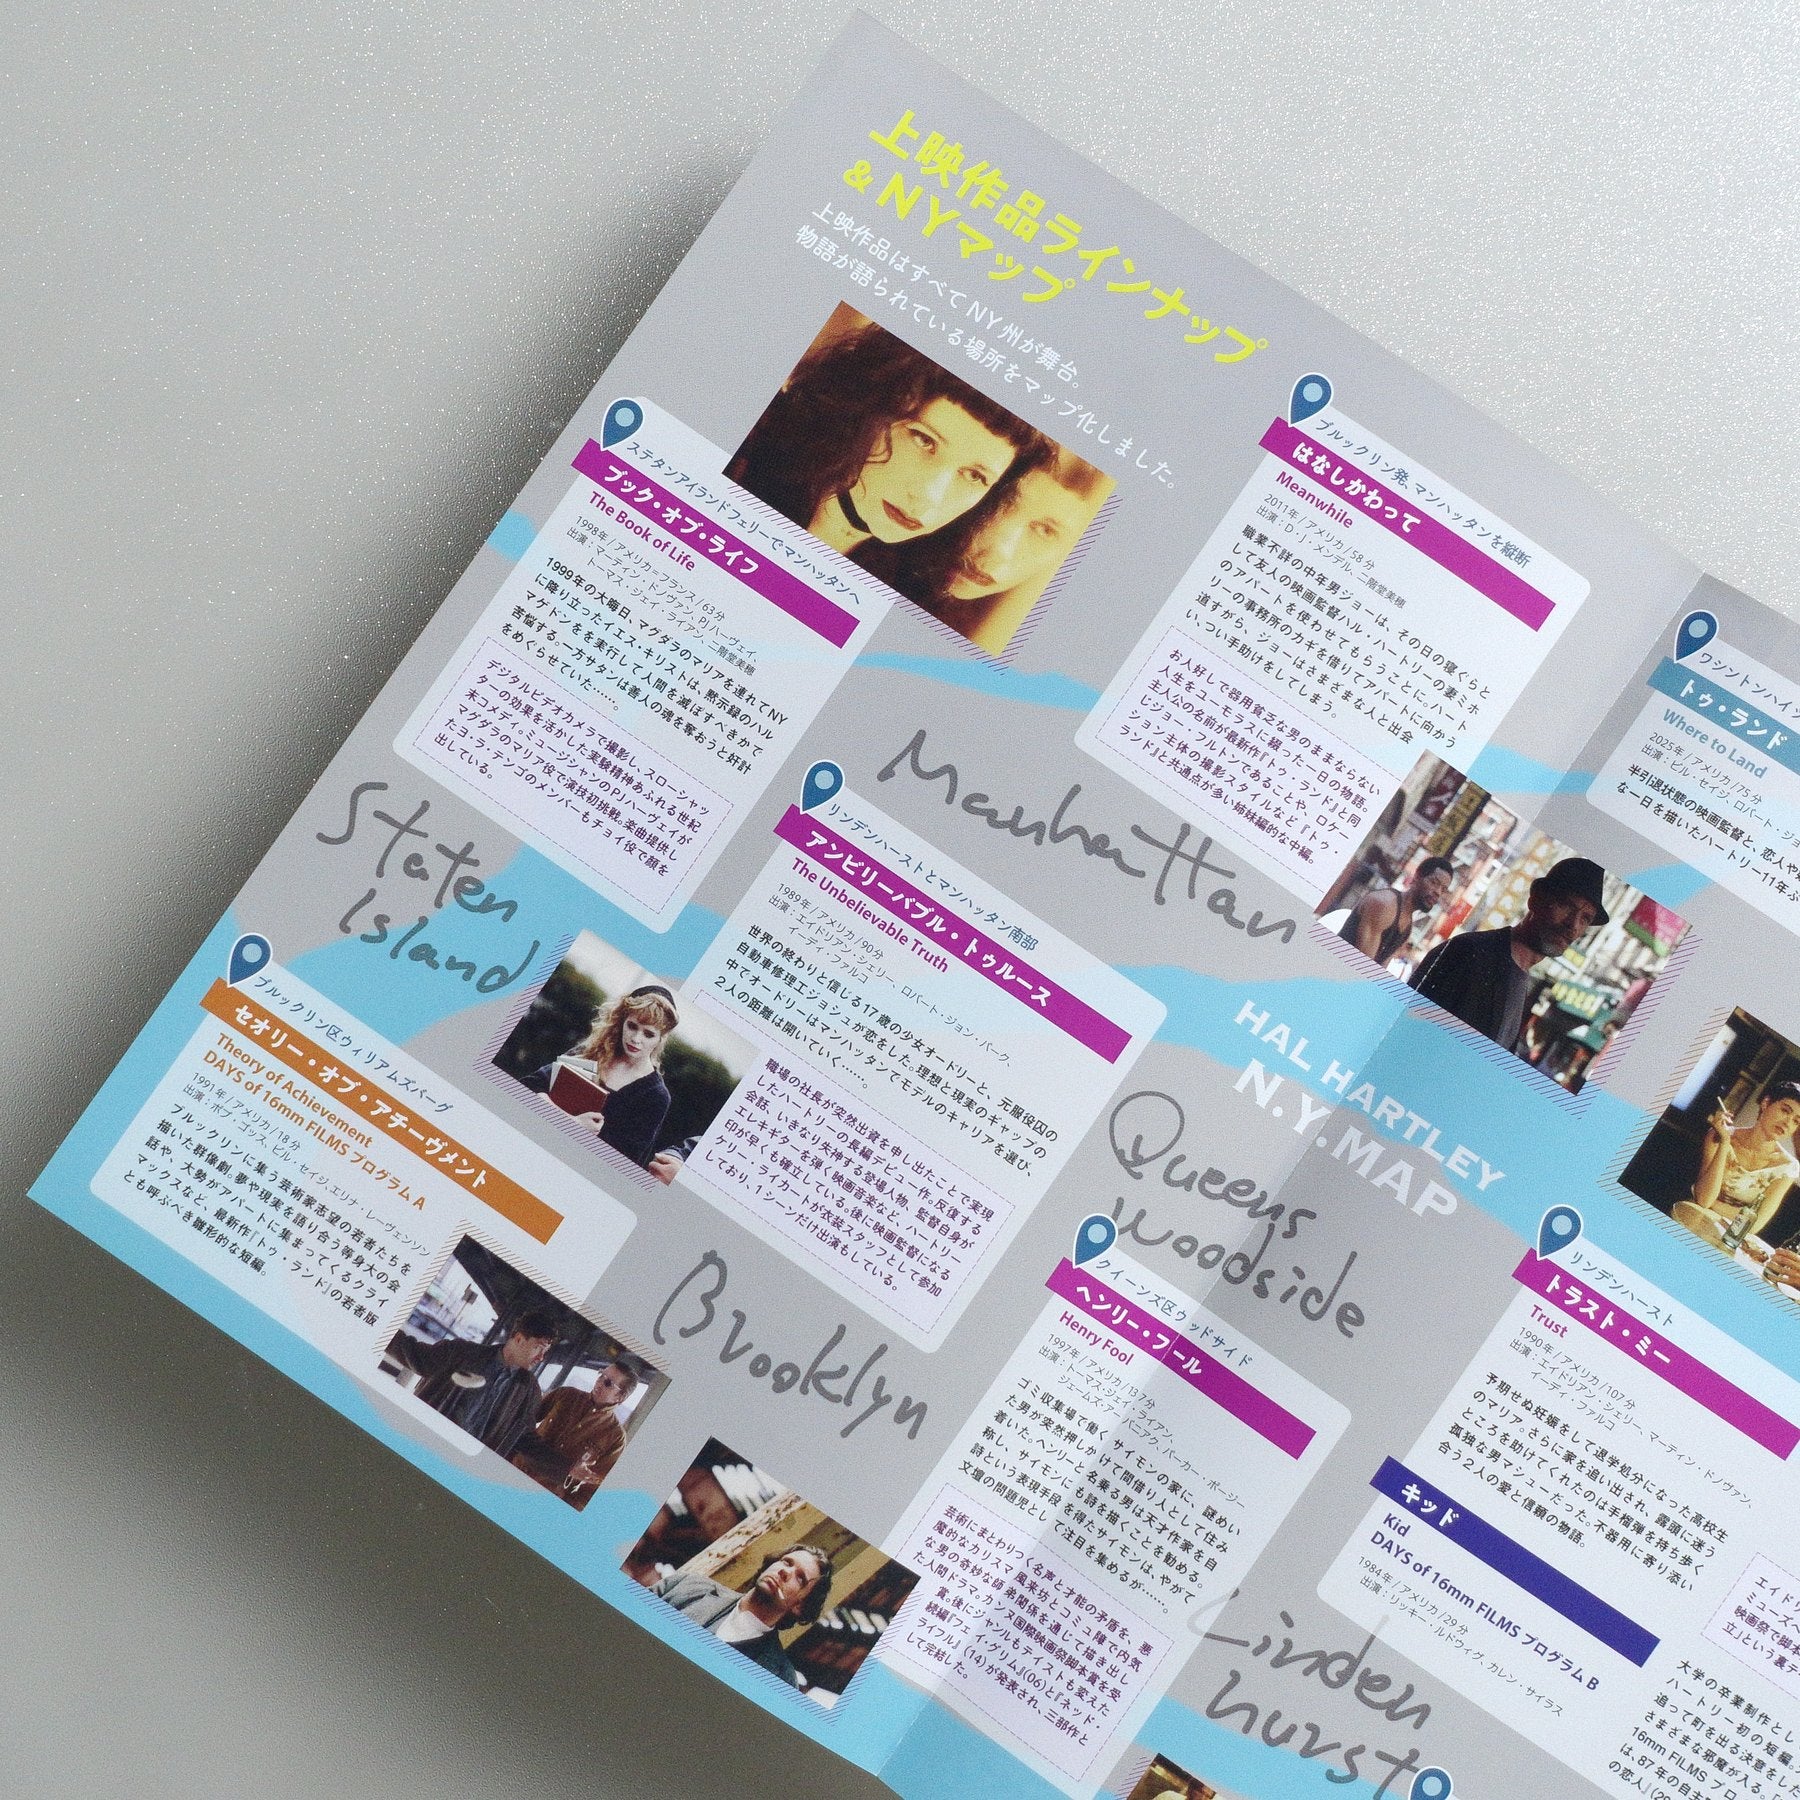 上映作品ラインナップ
&NYマップ
上映作品はすべてNY州が舞台。
物語が語られている場所をマップ化しました。
ステタンアイランドフェリーでマンハッタンへ
ブック・オブ・ライフ
The Book of Life
1998年/アメリカ=フランス/63分
出演:マーティン・ドノヴァン、PJハーヴェイ、
トーマス・ジェイ・ライアン、二階堂美穂
1999年の大晦日、マグダラのマリアを連れてNY
に降り立ったイエス・キリストは、黙示録のハル
マゲドンをを実行して人間を滅ぼすべきかで
苦悩する。一方サタンは善人の魂を奪おうと奸計
をめぐらせていた……。
デジタルビデオカメラで撮影し、スローシャッ
ターの効果を活かした実験精神あふれる世紀
末コメディ。ミュージシャンのPJハーヴェイが
マグダラのマリア役で演技初挑戦。楽曲提供し
たヨ・ラ・テンゴのメンバーもチョイ役で顔を
出している。
ブルックリン発、マンハッタンを縦断
はなしかわって
Meanwhile
2011年/アメリカ/58分
出演:D・J・メンデル、二階堂美穂
職業不詳の中年男ジョーは、その日の寝ぐらと
して友人の映画監督ハル・ハートリーの妻ミホ
のアパートを使わせてもらうことに。ハート
リーの事務所のカギを借りてアパートに向かう
道すがら、ジョーはさまざまな人と出会
い、つい手助けをしてしまう。
お人好しで器用貧乏な男のままならない
人生をユーモラスに綴った一日の物語。
主人公の名前が最新作『トゥ・ランド』と同
じジョー・フルトンであることや、ロケー
ション主体の撮影スタイルなど『トゥ・
ランド』と共通点が多い姉妹編的な中編。
ワシントンハイツ
トゥ・ランド
Where to Land
2025年/アメリカ/75分
出演:ビル・セイジ、ロバート・ジョ
半引退状態の映画監督と、恋人や
な一日を描いたハートリー11年ぶ
Manhattan
Staten
Island
リンデンハーストとマンハッタン南部
アンビリーバブル・トゥルース
The Unbelievable Truth
1989年/アメリカ/90分
出演:エイドリアン・シェリー、ロバート・ジョン・バーク、
イーディ・ファルコ
世界の終わりと信じる17歳の少女オードリーと、元服役囚の
自動車修理工ジョシュが恋をした。理想と現実のギャップの
中でオードリーはマンハッタンでモデルのキャリアを選び、
2人の距離は開いていく……。
職場の社長が突然出資を申し出たことで実現
したハートリーの長編デビュー作。反復する
会話、いきなり失神する登場人物、監督自身が
エレキギターを弾く映画音楽など、ハートリー
印が早くも確立している。後に映画監督になる
ケリー・ライカートが衣装スタッフとして参加
しており、1シーンだけ出演もしている。
ブルックリン区ウィリアムズバーグ
セオリー・オブ・アチーヴメント
Theory of Achievement
DAYS of 16mm FILMS プログラム A
1991年/アメリカ/18分
出演:ボブ・ゴッス、ビル・セイジ、エリナ・レーヴェンソン
ブルックリンに集う芸術家志望の若者たちを
描いた群像劇。夢や現実を語り合う等身大の会
話や、大勢がアパートに集まってくるクライ
マックスなど、最新作『トゥ・ランド』の若者版
とも呼ぶべき雛形的な短編。
HAL HARTLEY
N.Y. MAP
Queens
Woodside
Brooklyn
クイーンズ区ウッドサイド
ヘンリー・フール
Henry Fool
1997年/アメリカ/137分
出演:トーマス・ジェイ・ライアン、
ジェームズ・アーバニアク、パーカー・ポージー
ゴミ収集場で働くサイモンの家に、謎めい
た男が突然押しかけて間借り人として住み
着いた。ヘンリーと名乗る男は天才作家を自
称し、サイモンにも詩を描くことを勧める。
詩という表現手段を得たサイモンは、やがて
文壇の問題児として注目を集めるが……。
芸術にまとわりつく名声と才能の矛盾を、悪
魔的なカリスマ風来坊とコミュ障で内気
な男の奇妙な師弟関係を通じて描き出し
た人間ドラマ。カンヌ国際映画祭脚本賞を受
賞。後にジャンルもテイストも変えた
続編『フェイ・グリム』(06)と『ネッド・
ライフル』(14)が発表され、三部作と
して完結した。
リンデンハースト
トラスト・ミー
Trust
1990年/アメリカ/107分
出演:エイドリアン・シェリー、マーティン・ドノヴァン、
イーディ・ファルコ
予期せぬ妊娠をして退学処分になった高校生
のマリア。さらに家を追い出され、露頭に迷う
ところを助けてくれたのは手榴弾を持ち歩く
孤独な男マシューだった。不器用に寄り添い
合う2人の愛と信頼の物語。
エイド
ミューズへ
映画祭で脚本
立」という裏テ
キッド
Kid
DAYS of 16mm FILMS プログラム B
1984年/アメリカ/29分
出演:リッキー・ルドウィグ、カレン・サイラス
大学の卒業制作とし
ハートリー初の短編。
追って町を出る決意をし
さまざまな邪魔が入る。
16mm FILMS プロ
は、87年の自主
の恋人』(29
Linden
hurst